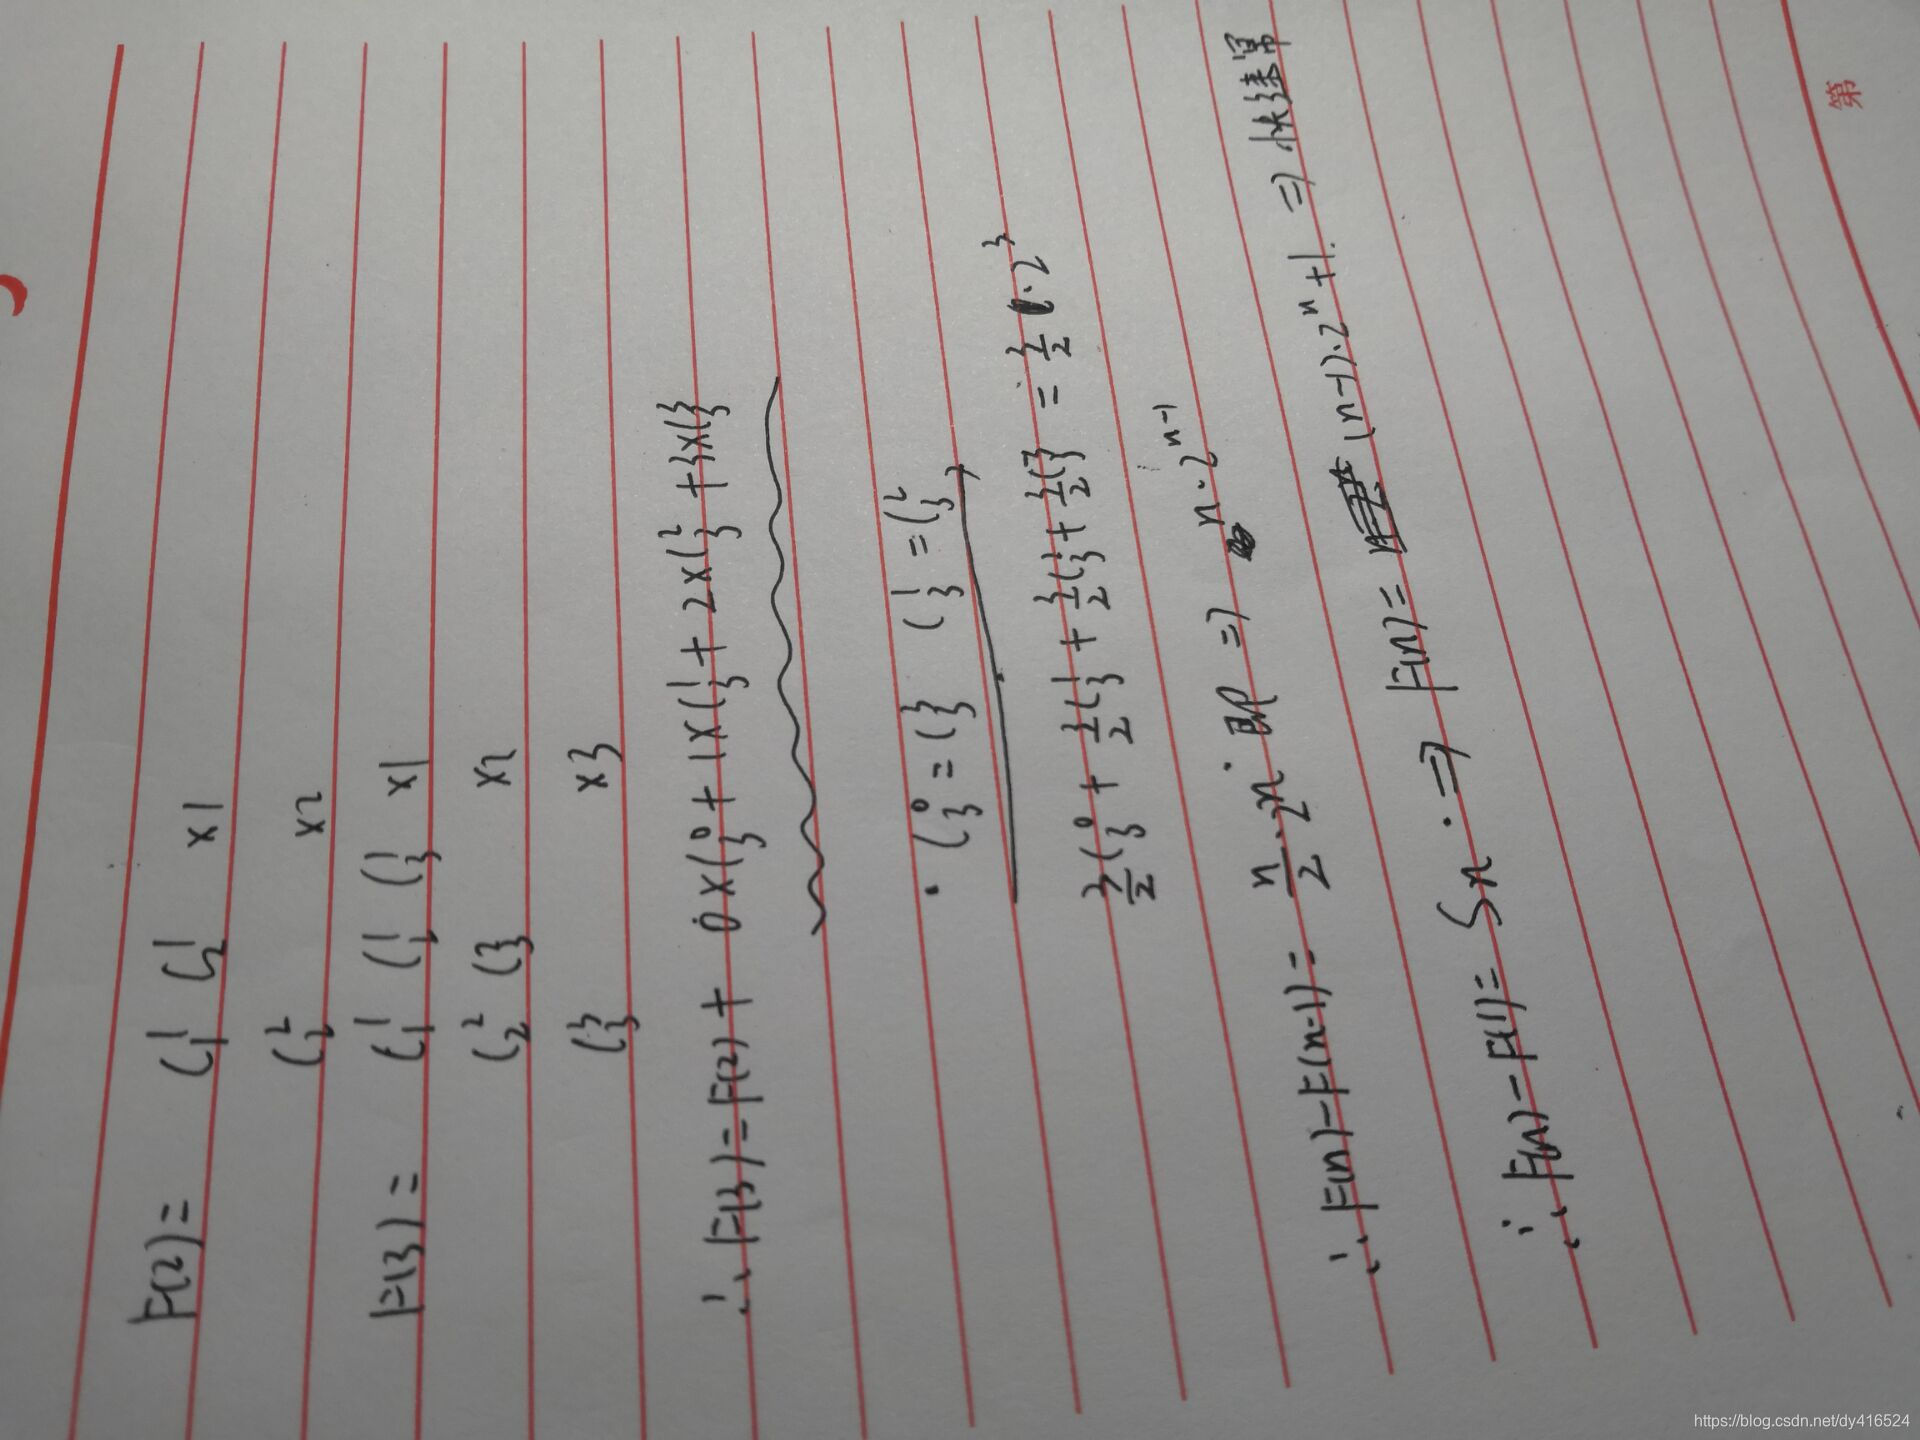 F(2)= C₁¹ C₂¹ ×1
C₂² ×2
F(3)= C₁¹ C₂¹ C₃¹ ×1
C₂² C₃² ×2
C₃³ ×3
∴ F(3)=F(2)+ 0×C₃⁰+1×C₃¹+2×C₃²+3×C₃³
· C₃⁰=C₃³ C₃¹=C₃²
3/2C₃⁰+3/2C₃¹+3/2C₃²+3/2C₃³=3/2·2³
∴ F(n)-F(n-1)= n/2·2ⁿ 即 => n·2ⁿ⁻¹
∴ F(n)-F(1)= Sn· => F(n)= (n-1)·2ⁿ+1. => 快速幂
第
https://blog.csdn.net/dy416524